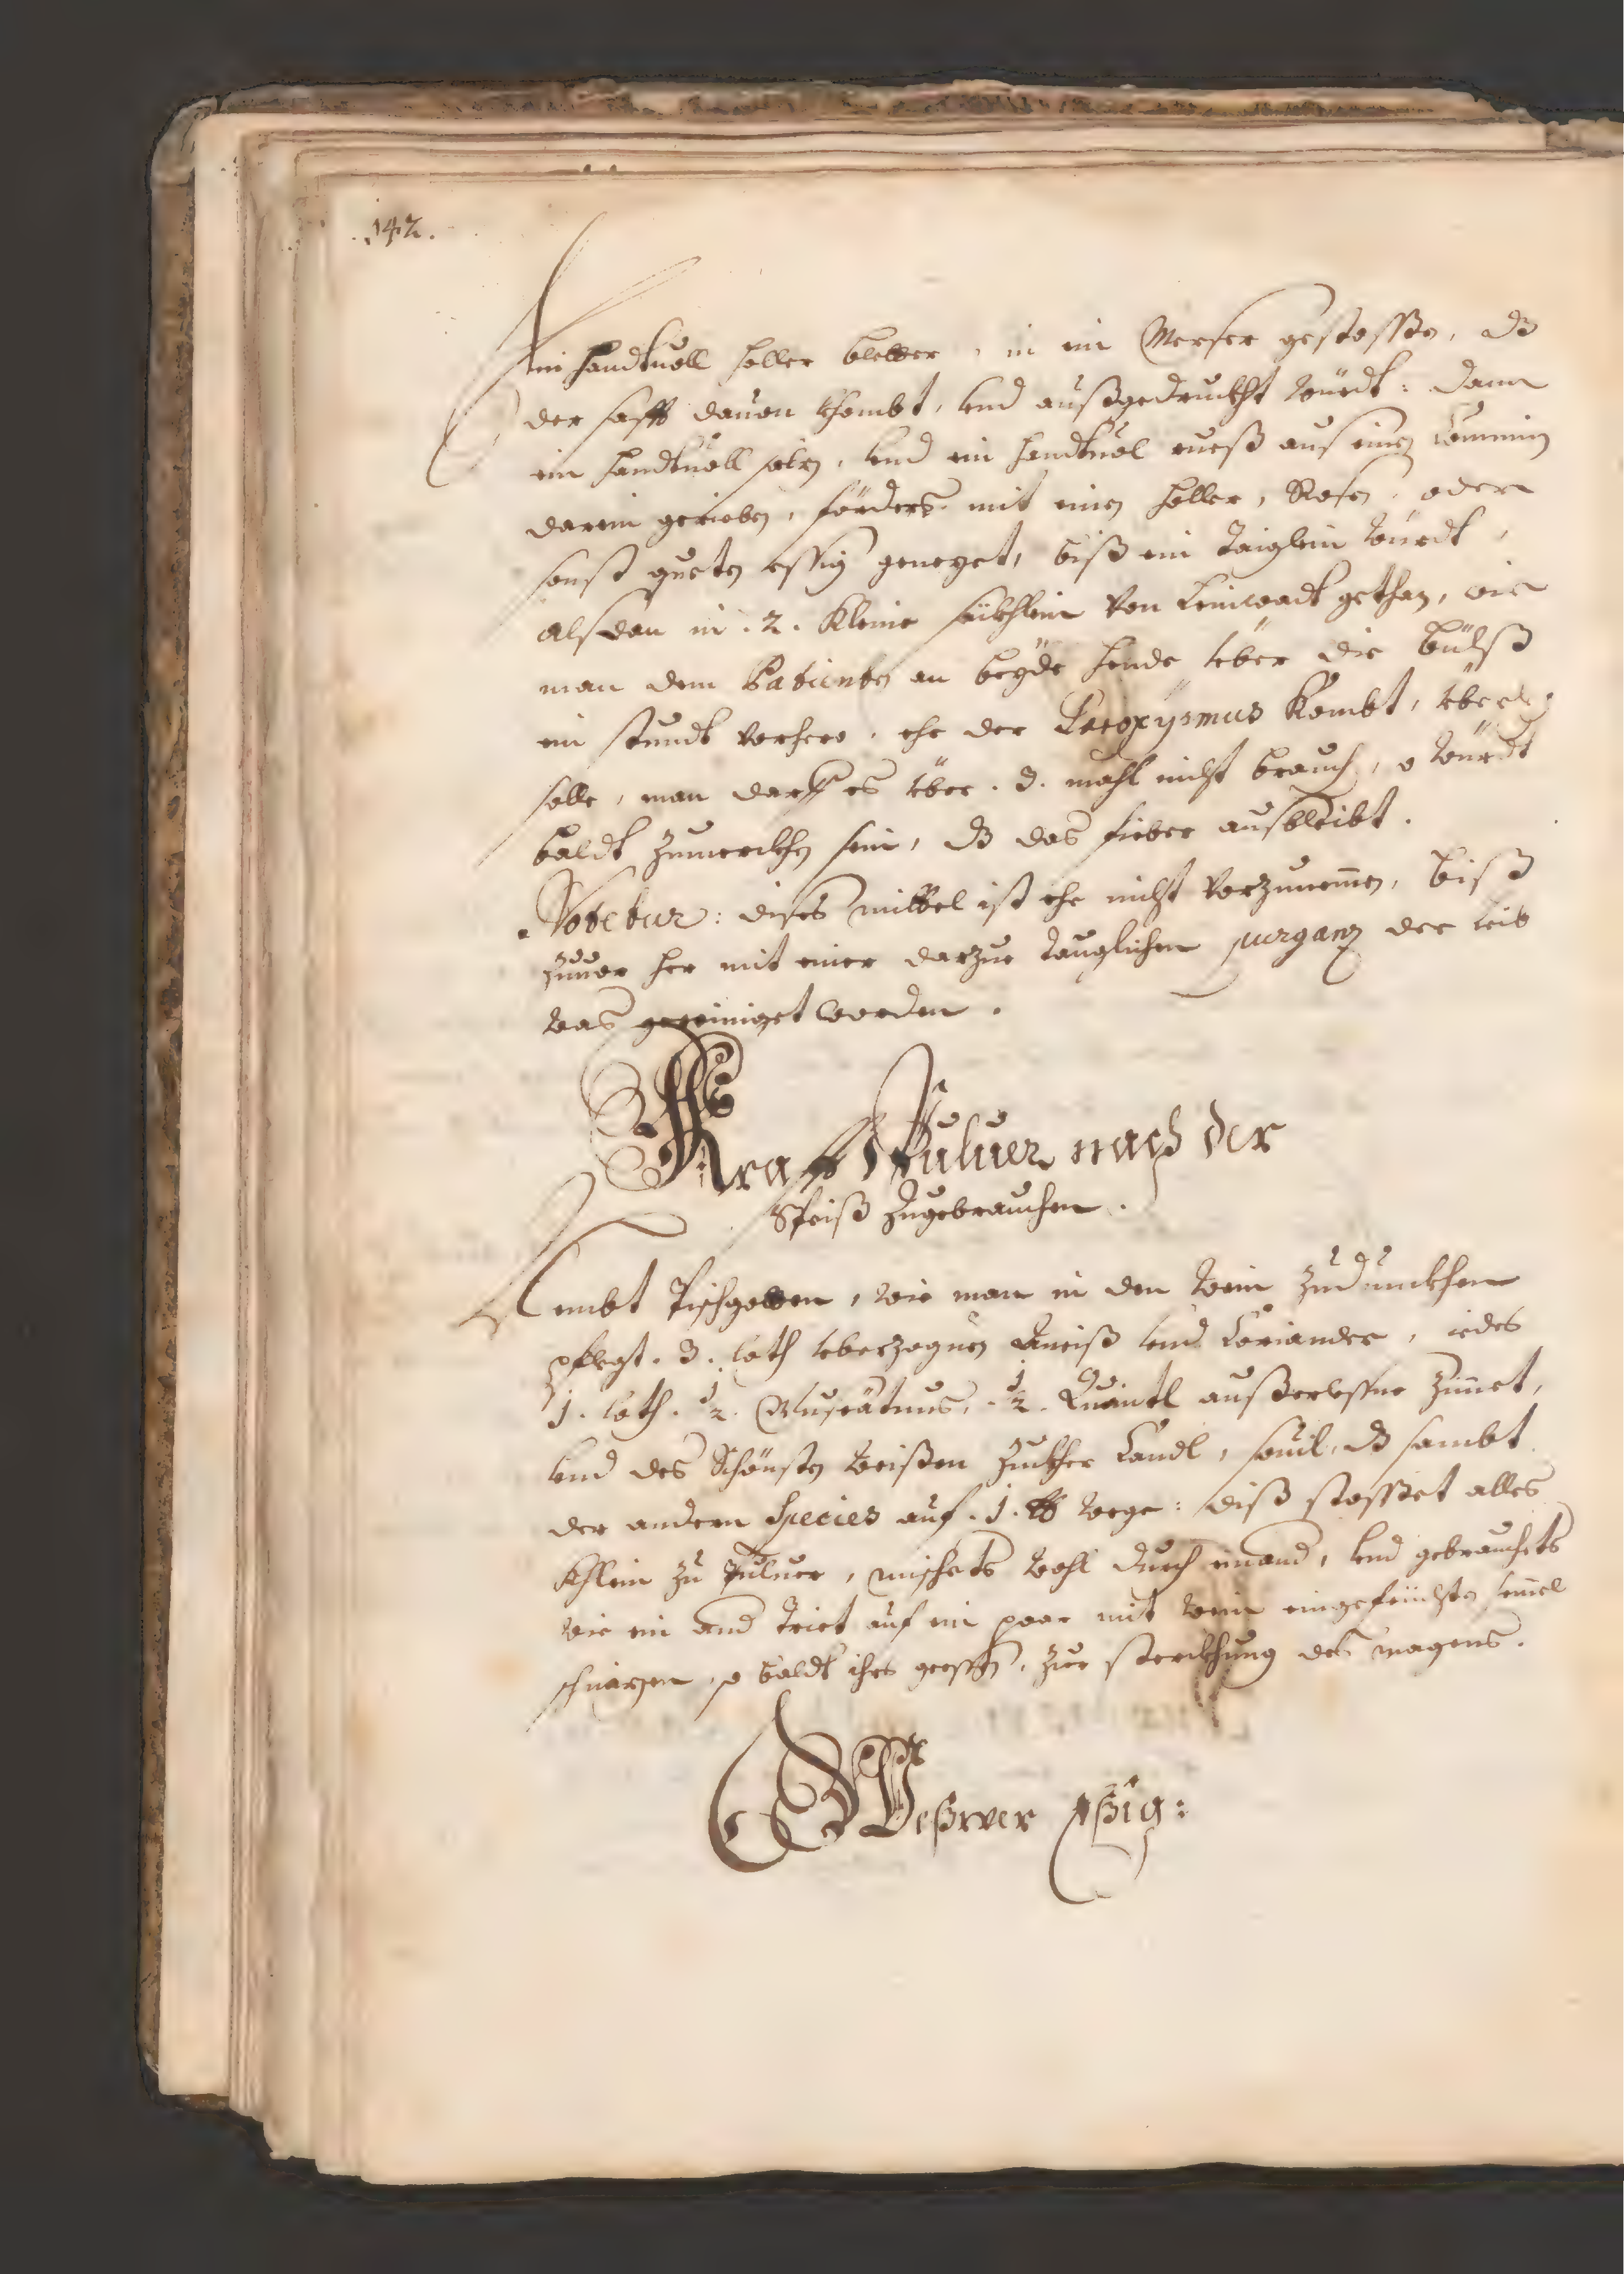 142.
Ein handtuoll holler bletter, in ein Merser gestossen, dz
der safft dauon khombt, vnd außgedruckht würdt: dann
ein handtuoll salz, vnd ein handtuol rueß aus einem Commin
darein gerieben, förders mit einem holler, Rosen, oder
sonst gueten essig genezet, biß ein Taiglein würdt,
alßdan in .2. Kleine säckhlein von Leinwadt gethan, wie
man dem Patienten an beyde hende über die Pulß
ein stundt vorhero, ehe der Paroxysmus Kombt,
solle, man darff es über .3. mahl nicht brauch, würdt
baldt zumerckhen sein, dz das fieber ausbleibt.
Notetur: dises mittel ist ehe nicht vorzunemen, biß
zuuor her mit einer darzue tauglichen purganz der leib
was gereiniget worden.
Krafft Puluer nach der
Speiß zugebrauchen.
Nembt Tischgetten, wie man in den Wein zudunckhen
pflegt .3. loth vberzognen Aneiß vnd Coriander, iedes
1. loth. ½. Muscätnus, .½. Quäntl außerlessne zimet,
vnd des Schönsten weißen zuckher Candl, souil, dz sambt
der andern Species auf .1. ℔ wege: diß stosset alles
Khlein zu Puluer, mischets wohl durch einand, vnd gebrauchets
wie ein and Triet auf ein paar mit wein eingefeüchten semel
schnizen, so baldt ihrs geessen, zur sterckhung des magens.
Weßrer Eßig: